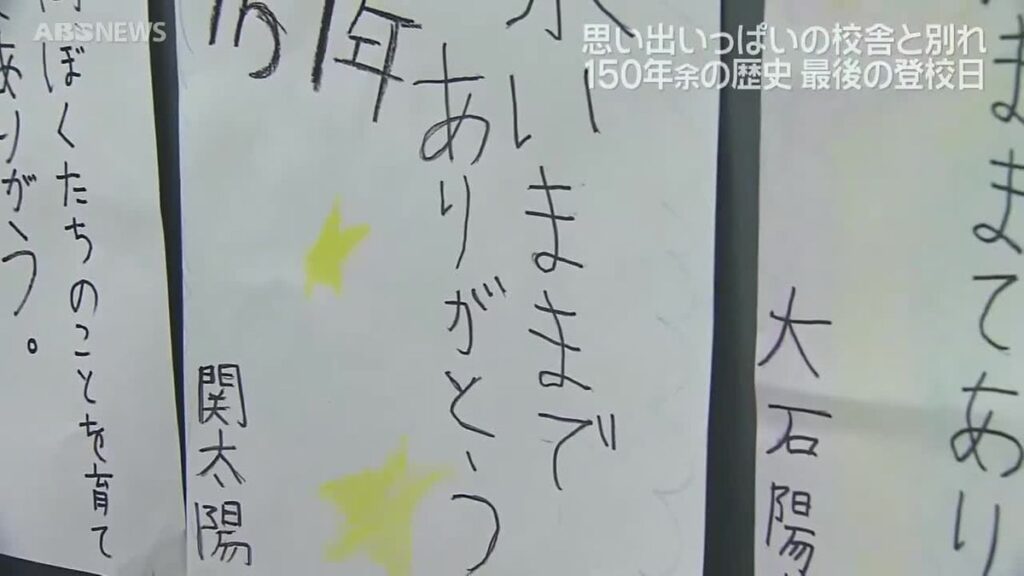 ABS NEWS
思い出いっぱいの校舎と別れ
150年余の歴史 最後の登校日
ままてあり
大石陽
いままで
ありがとう
年
関太陽
ぼくたちのことを育て
ありがう。